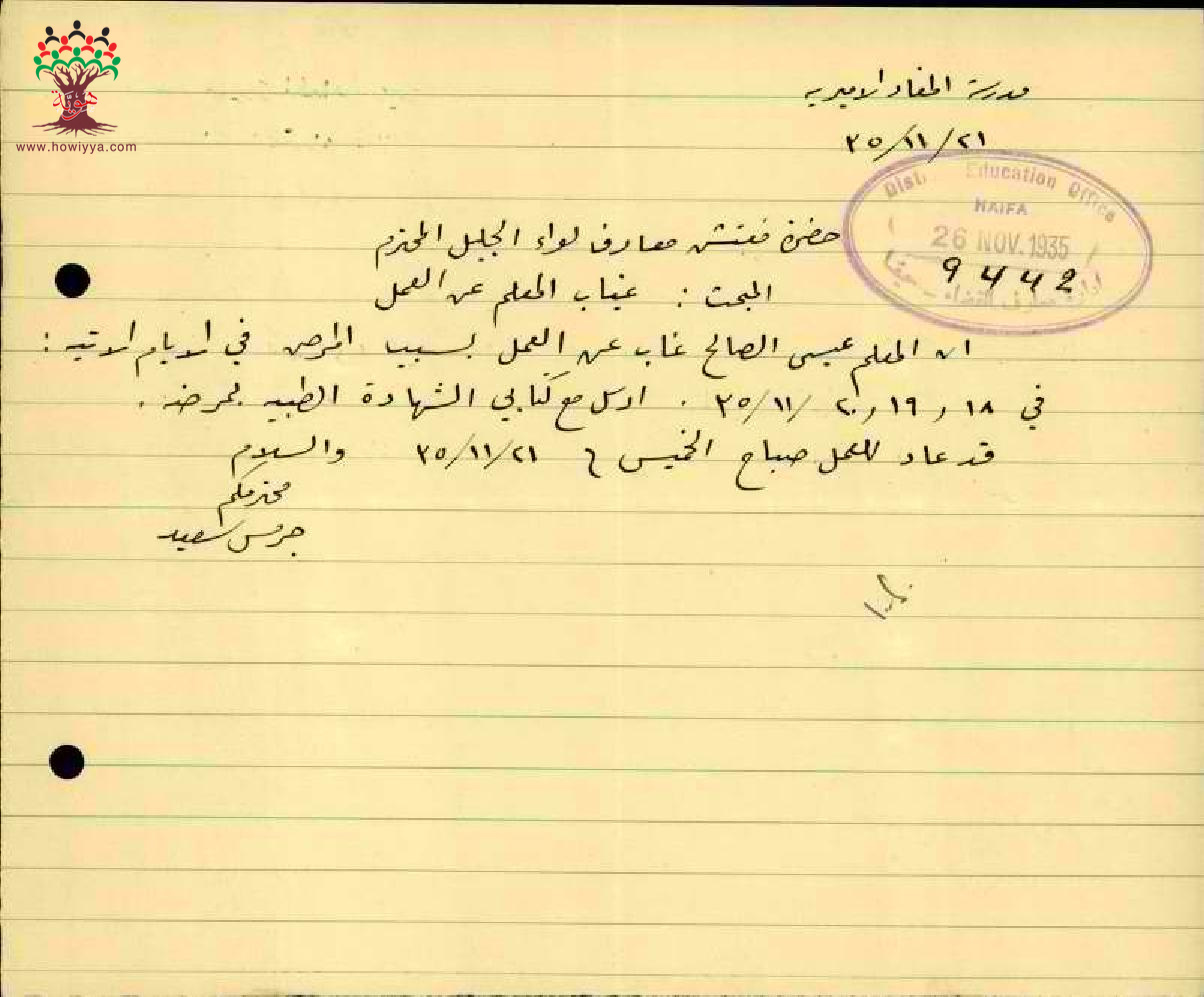 هوية
www.howiyya.com
مدرسة المغار الاميرية
٢١/١١/٣٥
Dist. Education Office
HAIFA
26 NOV. 1935
9442
ادارة معارف القضاء - حيفا
حضرة مفتش معارف لواء الجليل المحترم
المبحث : غياب المعلم عن العمل
ان المعلم عيسى الصالح غاب عن العمل بسبب المرض في الايام الاتيه :
في ١٨ و ١٩ و ٢٠ /١١/ ٣٥ . ارسل مع كتابي الشهادة الطبيه لمرضه .
قد عاد للعمل صباح الخميس في ٢١/١١/٣٥ والسلام
محترمكم
جرس سعيد